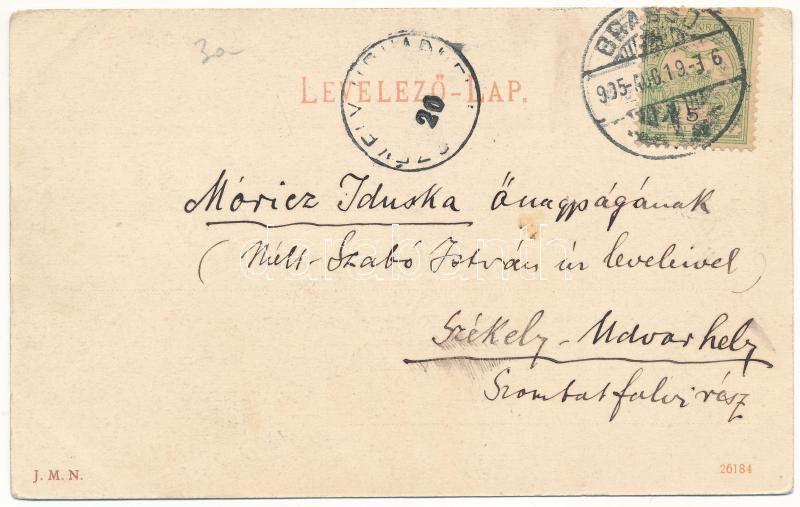 30
LEVELEZŐ-LAP.
SZÉKELYUDVARHELY
20
BRASSÓ
905 AUG. 19.-3 6
5
Móricz Iduska őnagyságának
(Ntts. Szabó István úr leveleivel)
Székely-Udvarhely
Szombatfalvi rész
darabanth
J. M. N.
26184